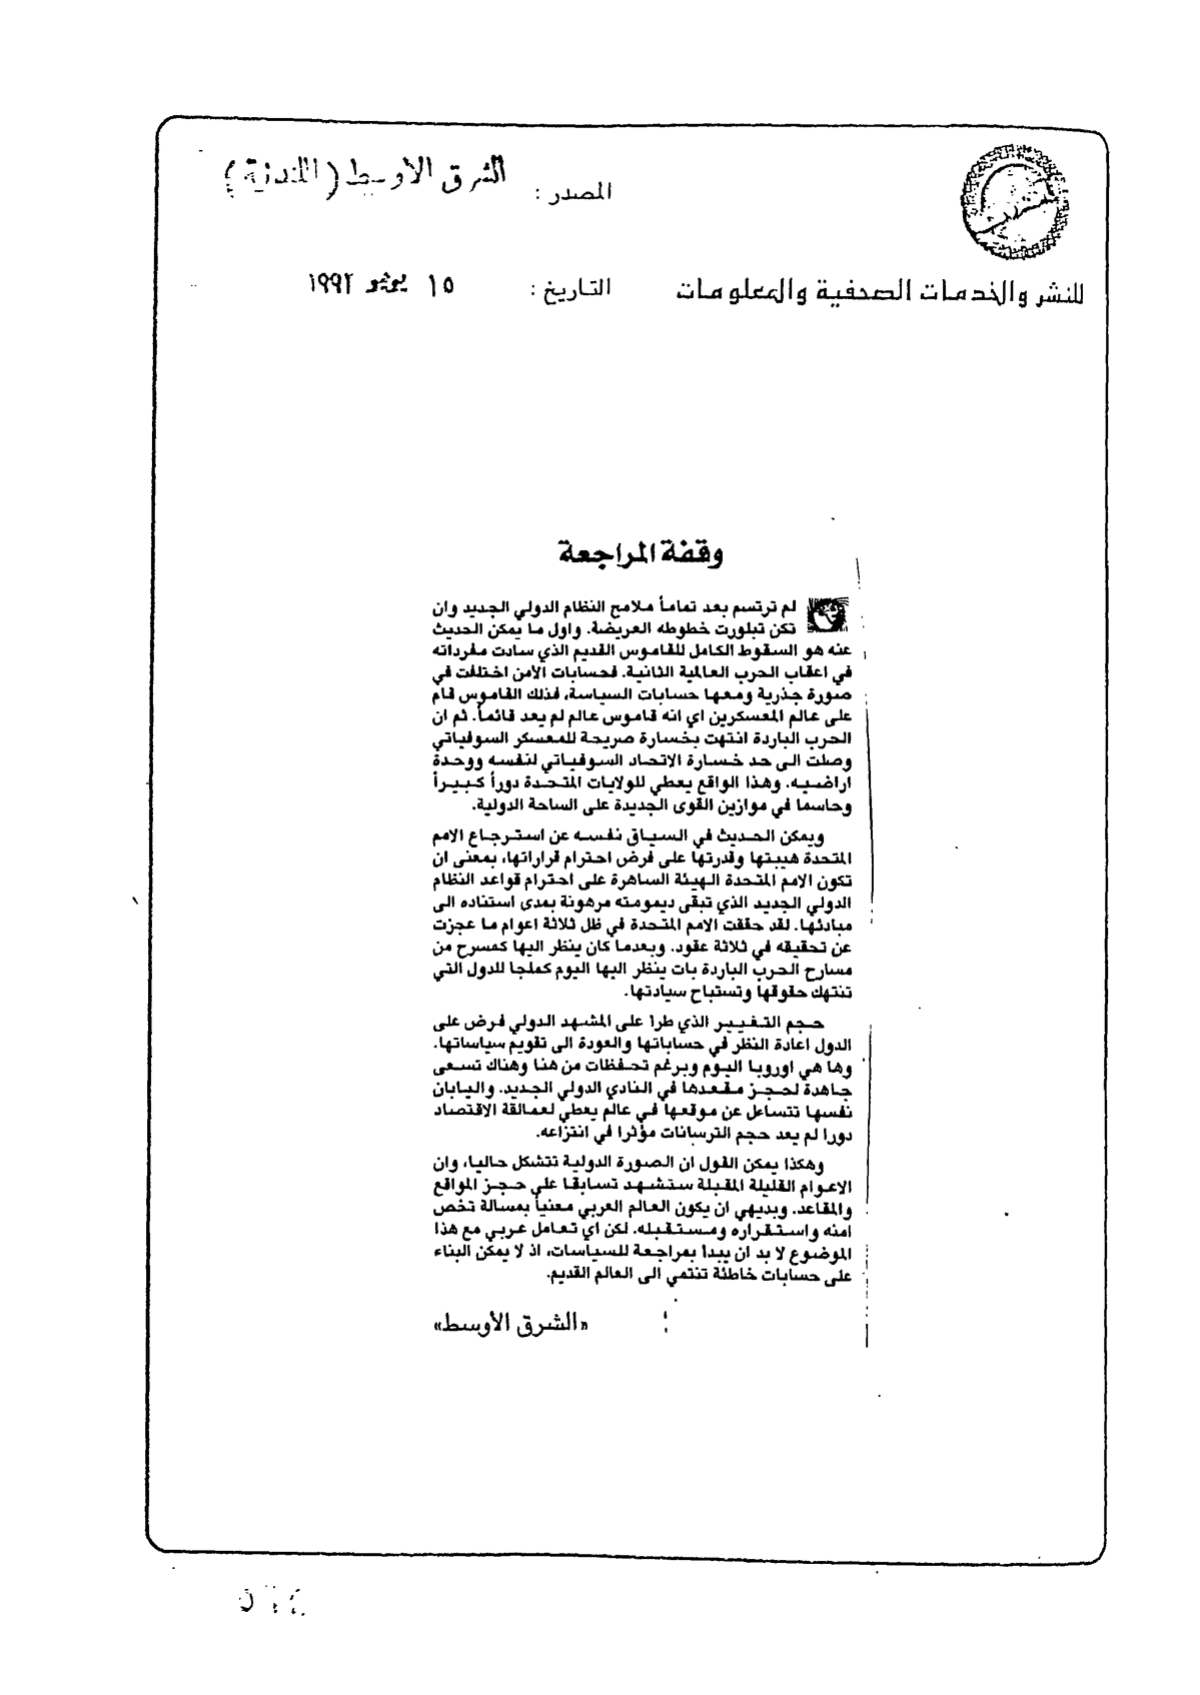 المصدر : الشرق الأوسط (اللندنية)
للنشر والخدمات الصحفية والمعلومات
التاريخ : ١٥ يونيو ١٩٩٢
وقفة المراجعة
لم ترتسم بعد تماماً ملامح النظام الدولي الجديد وان
تكن تبلورت خطوطه العريضة. واول ما يمكن الحديث
عنه هو السقوط الكامل للقاموس القديم الذي سادت مفرداته
في اعقاب الحرب العالمية الثانية. فحسابات الأمن اختلفت في
صورة جذرية ومعها حسابات السياسة، فذلك القاموس قام
على عالم المعسكرين اي انه قاموس عالم لم يعد قائماً. ثم ان
الحرب الباردة انتهت بخسارة صريحة للمعسكر السوفياتي
وصلت الى حد خسارة الاتحاد السوفياتي لنفسه ووحدة
اراضيه. وهذا الواقع يعطي للولايات المتحدة دوراً كبيراً
وحاسما في موازين القوى الجديدة على الساحة الدولية.
ويمكن الحديث في السياق نفسه عن استرجاع الامم
المتحدة هيبتها وقدرتها على فرض احترام قراراتها، بمعنى ان
تكون الامم المتحدة الهيئة الساهرة على احترام قواعد النظام
الدولي الجديد الذي تبقى ديمومته مرهونة بمدى استناده الى
مبادئها. لقد حققت الامم المتحدة في ظل ثلاثة اعوام ما عجزت
عن تحقيقه في ثلاثة عقود. وبعدما كان ينظر اليها كمسرح من
مسارح الحرب الباردة بات ينظر اليها اليوم كملجا للدول التي
تنتهك حقوقها وتستباح سيادتها.
حجم التغيير الذي طرا على المشهد الدولي فرض على
الدول اعادة النظر في حساباتها والعودة الى تقويم سياساتها.
وها هي اوروبا اليوم وبرغم تحفظات من هنا وهناك تسعى
جاهدة لحجز مقعدها في النادي الدولي الجديد. واليابان
نفسها تتساءل عن موقعها في عالم يعطي لعمالقة الاقتصاد
دورا لم يعد حجم الترسانات مؤثرا في انتزاعه.
وهكذا يمكن القول ان الصورة الدولية تتشكل حاليا، وان
الاعوام القليلة المقبلة ستشهد تسابقا على حجز المواقع
والمقاعد. وبديهي ان يكون العالم العربي معنياً بمسالة تخص
امنه واستقراره ومستقبله. لكن اي تعامل عربي مع هذا
الموضوع لا بد ان يبدا بمراجعة للسياسات، اذ لا يمكن البناء
على حسابات خاطئة تنتمي الى العالم القديم.
«الشرق الأوسط»